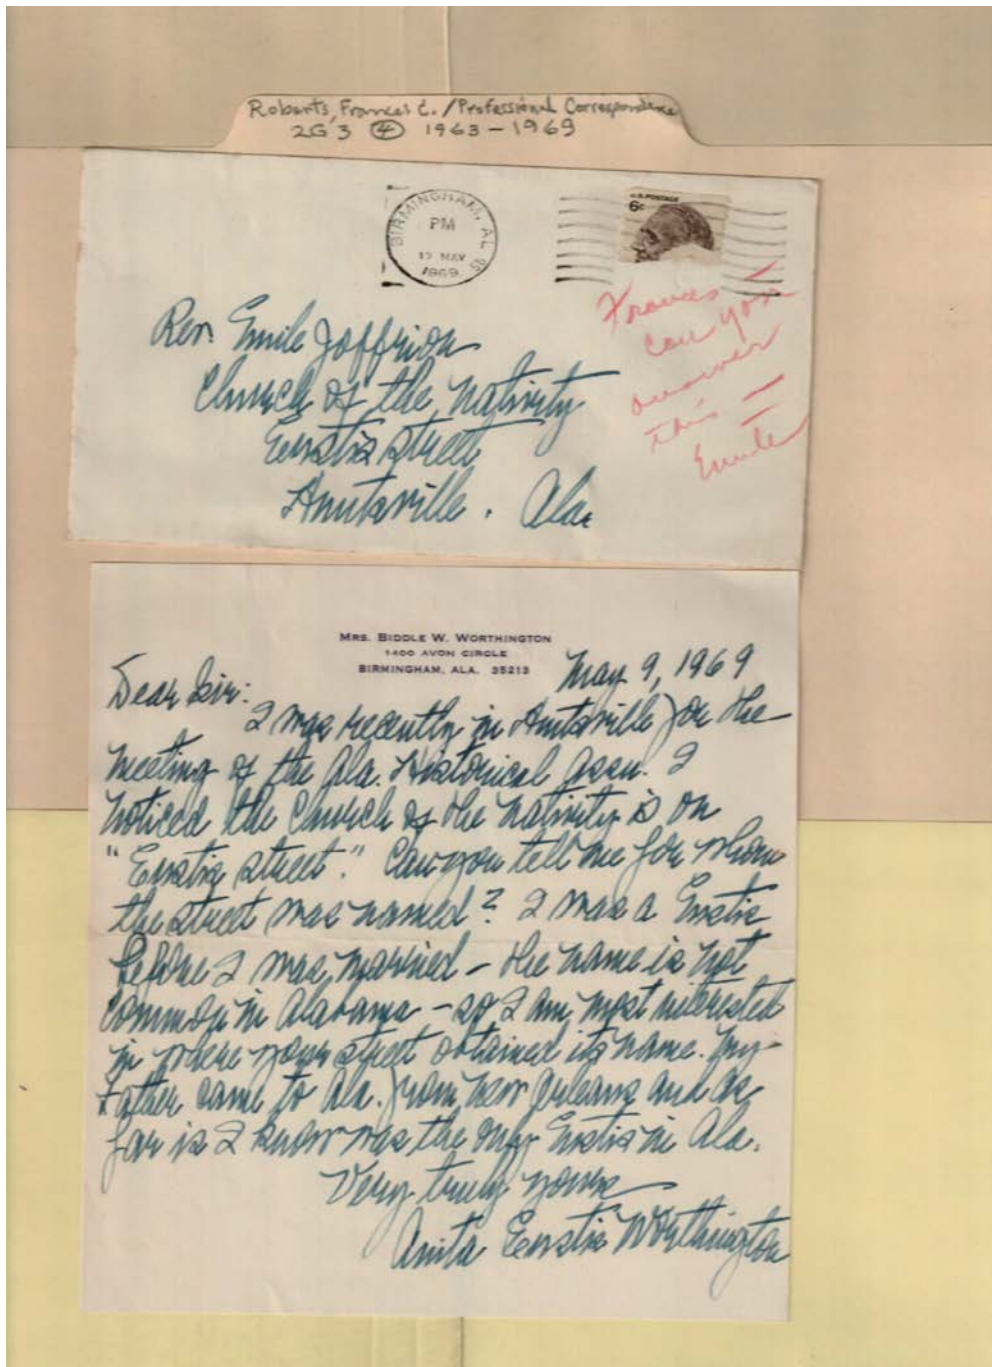 Roberts, Frances C. / Professional Correspondence
2G3 ④ 1963-1969
BIRMINGHAM, AL
PM
12 MAY
1969
U.S. POSTAGE
6c
Frances -
can you
answer
this -
Emile
Rev. Emile Joffrion
Church of the Nativity
Eustis Street
Huntsville. Ala.
MRS. BIDDLE W. WORTHINGTON
1400 AVON CIRCLE
BIRMINGHAM, ALA. 35213
May 9, 1969
Dear Sir:
I was recently in Huntsville for the
meeting of the Ala. Historical Assn. I
noticed the Church of the Nativity is on
"Eustis Street." Can you tell me for whom
the street was named? I was a Eustis
before I was married - the name is not
common in Alabama - so I am most interested
in where your street obtained its name. My
Father came to Ala. from New Orleans and as
far is I know was the only Eustis in Ala.
Very truly yours
Anita Eustis Worthington